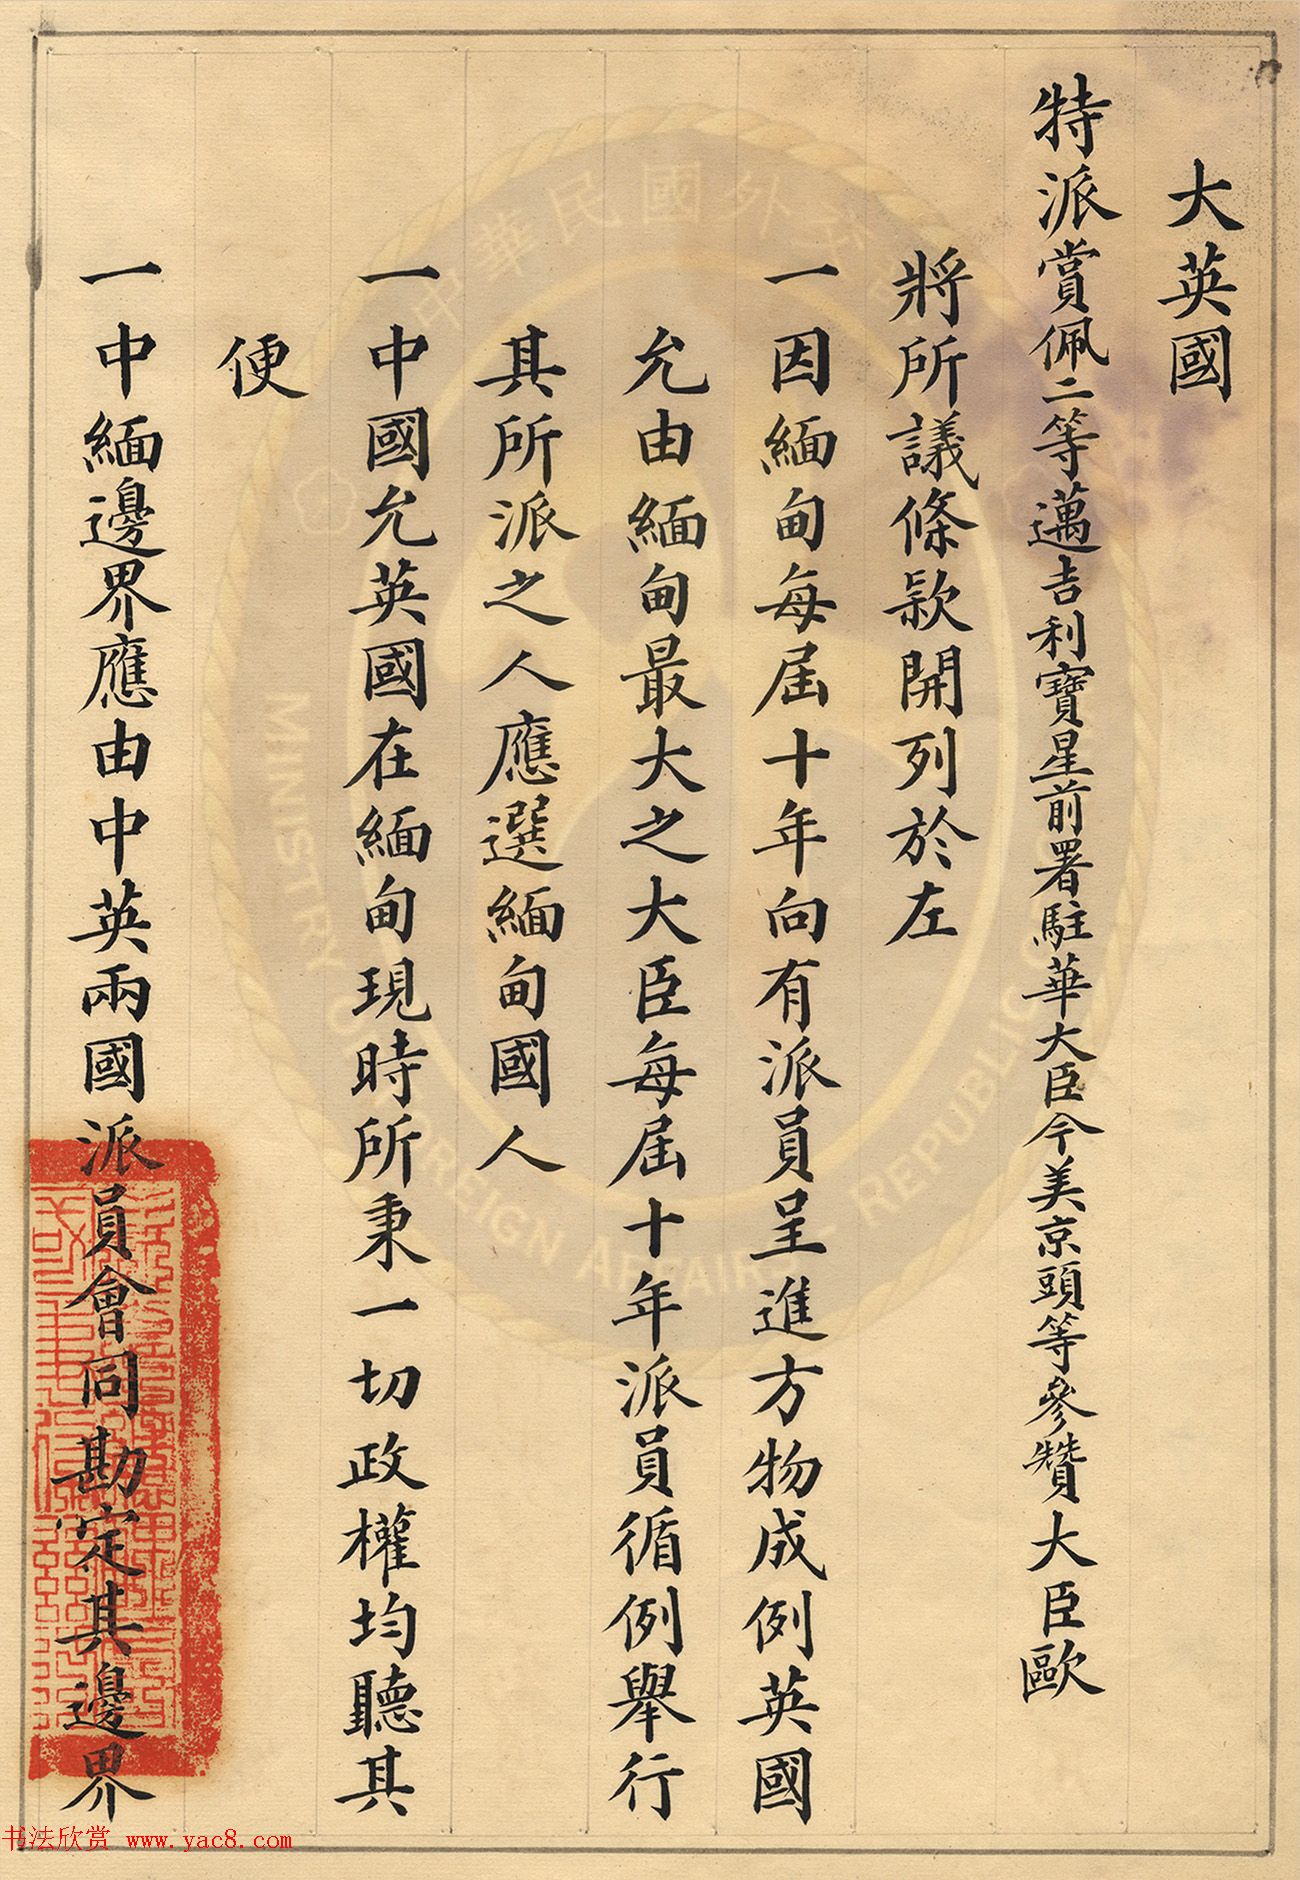 大英國
特派賞佩二等邁吉利寶星前署駐華大臣今美京頭等參贊大臣歐
將所議條款開列於左
一因緬甸每屆十年向有派員呈進方物成例英國
允由緬甸最大之大臣每屆十年派員循例舉行
其所派之人應選緬甸國人
一中國允英國在緬甸現時所秉一切政權均聽其
便
一中緬邊界應由中英兩國派員會同勘定其邊界
中華民國外交部
MINISTRY OF FOREIGN AFFAIRS REPUBLIC OF
书法欣赏 www.yac8.com